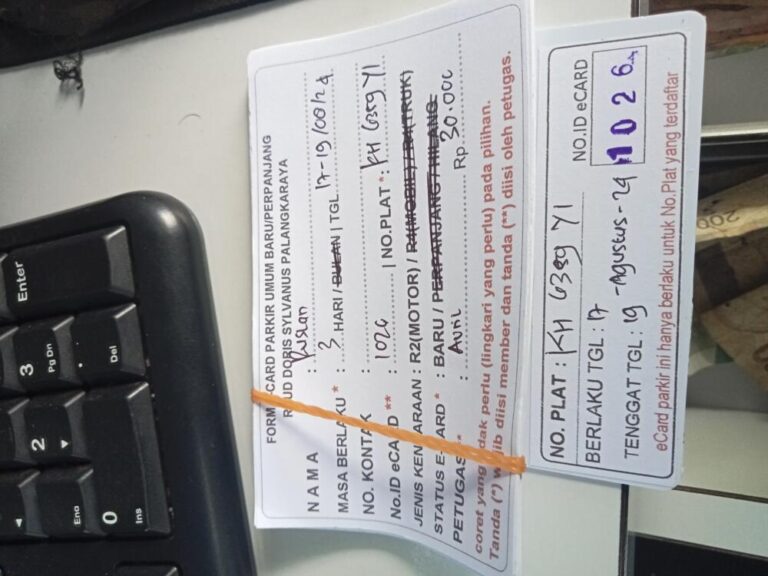 FORM CARD PARKIR UMUM BARU/PERPANJANG
R UD DORIS SYLVANUS PALANGKARAYA
NAMA : Ruslan
MASA BERLAKU * : 3 HARI / BULAN | TGL. 17-19/08/24
NO. KONTAK :
No.ID eCARD ** : 1026 | NO.PLAT * : KH 6389 YI
JENIS KENDARAAN : R2(MOTOR) / R4(MOBIL) / R4(TRUK)
STATUS E-CARD * : BARU / PERPANJANG / HILANG
PETUGAS ** : Avril Rp 30.000
coret yang dak perlu (lingkari yang perlu) pada pilihan.
Tanda (*) w ib diisi member dan tanda (**) diisi oleh petugas.
NO. PLAT : KH 6389 YI
NO.ID eCARD
BERLAKU TGL : 17
1026
TENGGAT TGL : 19 -Agustus-24
eCard parkir ini hanya berlaku untuk No.Plat yang terdaftar
Enter
3
Pg Dn
.
Del
2
Eno
0
Ins